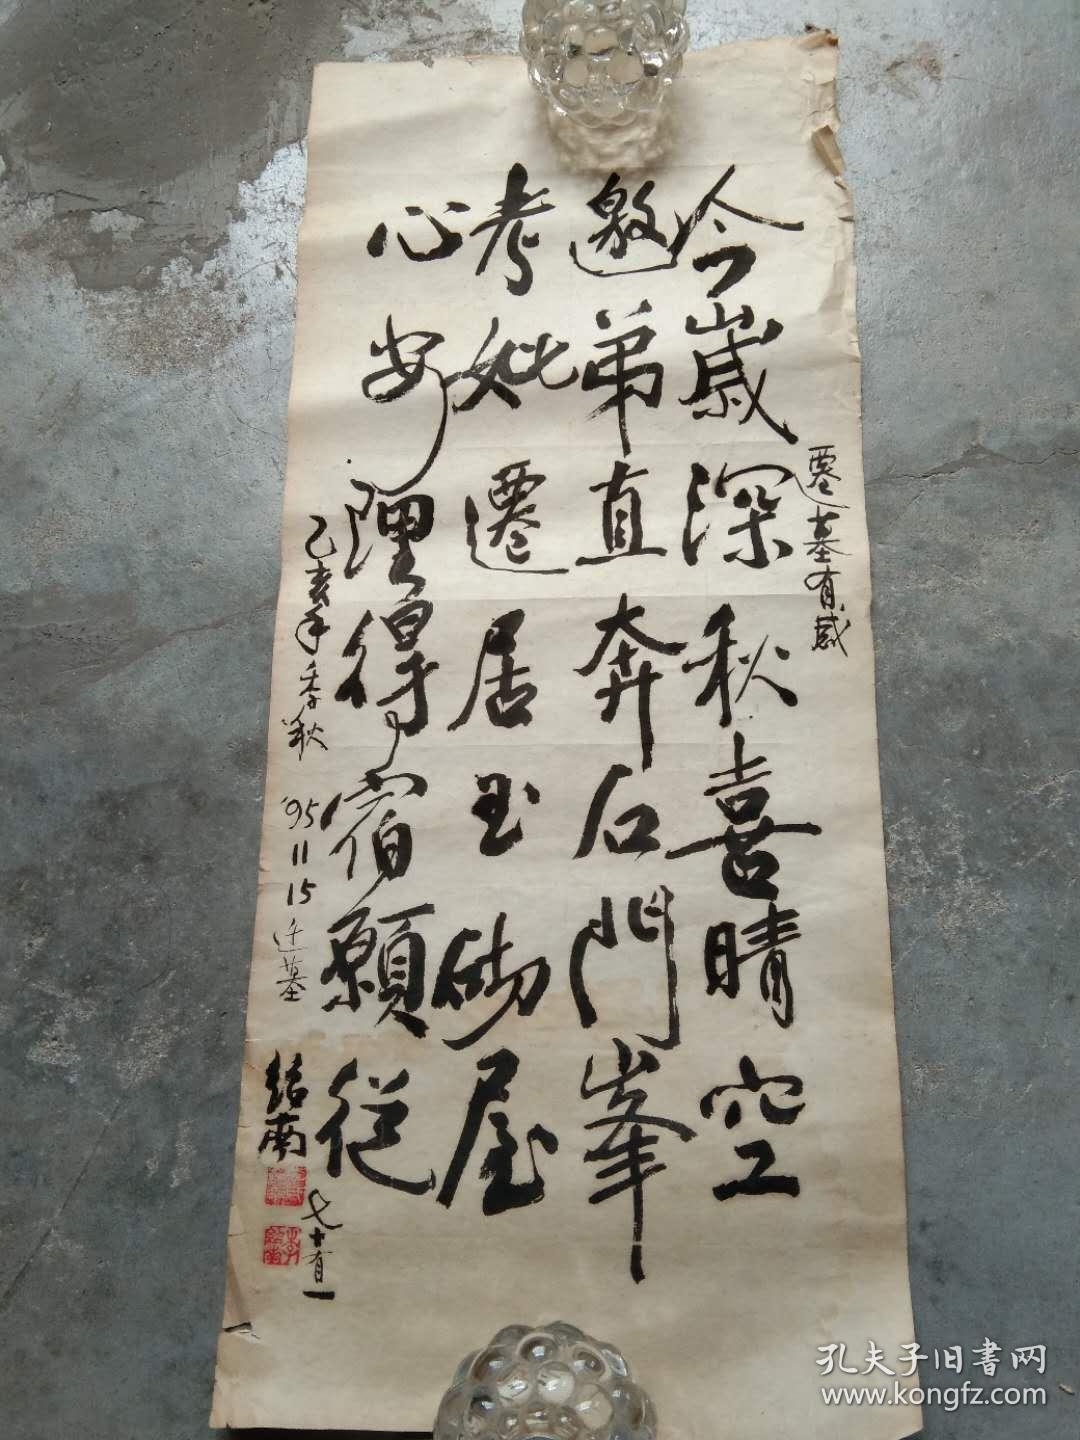 遷墓有感
今歲深秋喜晴空
邀弟直奔石門峯
考妣遷居玉砌屋
心安理得宿願從
乙亥年季秋 '95 11 15 迁墓
绍南
七十有一
孔夫子旧書网
www.kongfz.com